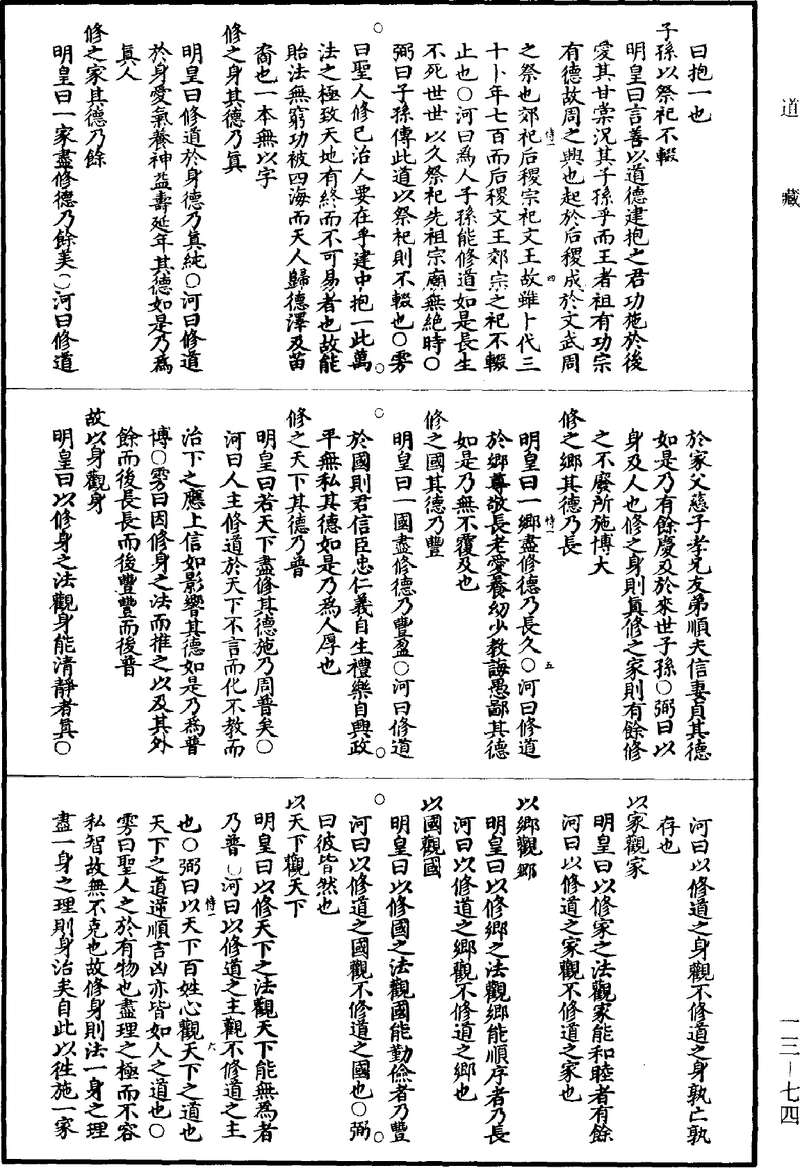 道藏
曰抱一也
子孫以祭祀不輟
明皇曰言善以道德建抱之君功施於後
愛其甘棠況其子孫乎而王者祖有功宗
有德故周之興也起於后稷成於文武周
之祭也郊祀后稷宗祀文王故雖卜代三
十卜年七百而后稷文王郊宗之祀不輟
止也○河曰為人子孫能修道如是長生
不死世世以久祭祀先祖宗廟無絕時○
弼曰子孫傳此道以祭祀則不輟也○雱
曰聖人修己治人要在乎建中抱一此萬
法之極致天地有終而不可易者也故能
貽法無窮功被四海而天人歸德澤及苗
裔也一本無以字
修之身其德乃真
明皇曰修道於身德乃真純○河曰修道
於身愛氣養神益壽延年其德如是乃為
真人
修之家其德乃餘
明皇曰一家盡修德乃餘美○河曰修道
於家父慈子孝兄友弟順夫信妻貞其德
如是乃有餘慶及於來世子孫○弼曰以
身及人也修之身則真修之家則有餘修
之不廢所施博大
修之鄉其德乃長
明皇曰一鄉盡修德乃長久○河曰修道
於鄉尊敬長老愛養幼少教誨愚鄙其德
如是乃無不覆及也
修之國其德乃豐
明皇曰一國盡修德乃豐盈○河曰修道
於國則君信臣忠仁義自生禮樂自興政
平無私其德如是乃為人厚也
修之天下其德乃普
明皇曰若天下盡修其德施乃周普矣○
河曰人主修道於天下不言而化不教而
治下之應上信如影響其德如是乃為普
博○雱曰因修身之法而推之以及其外
餘而後長長而後豐豐而後普
故以身觀身
明皇曰以修身之法觀身能清靜者真○
河曰以修道之身觀不修道之身孰亡孰
存也
以家觀家
明皇曰以修家之法觀家能和睦者有餘
河曰以修道之家觀不修道之家也
以鄉觀鄉
明皇曰以修鄉之法觀鄉能順序者乃長
河曰以修道之鄉觀不修道之鄉也
以國觀國
明皇曰以修國之法觀國能勤儉者乃豐
河曰以修道之國觀不修道之國也○弼
曰彼皆然也
以天下觀天下
明皇曰以修天下之法觀天下能無為者
乃普○河曰以修道之主觀不修道之主
也○弼曰以天下百姓心觀天下之道也
天下之道逆順吉凶亦皆如人之道也○
雱曰聖人之於有物也盡理之極而不容
私智故無不克也故修身則法一身之理
盡一身之理則身治矣自此以往施一家
一三－七四